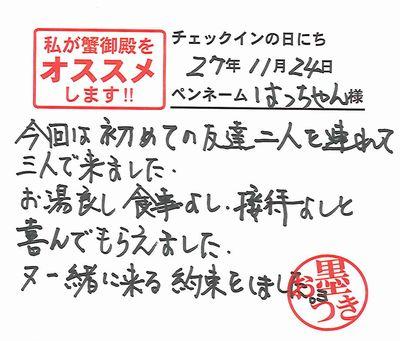 私が蟹御殿を
オススメ
します!!
チェックインの日にち
27年11月24日
ペンネーム はっちゃん様
今回は初めての友達二人を連れて
三人で来ました.
お湯良し食事よし.接待よしと
喜んでもらえました.
又一緒に来る約束をしました。
お墨つき